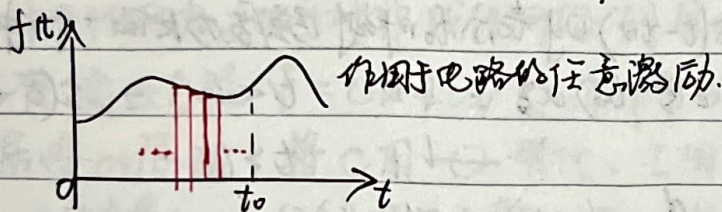 f(t)
作用于电路的任意激励.
... ...
0 t₀ t